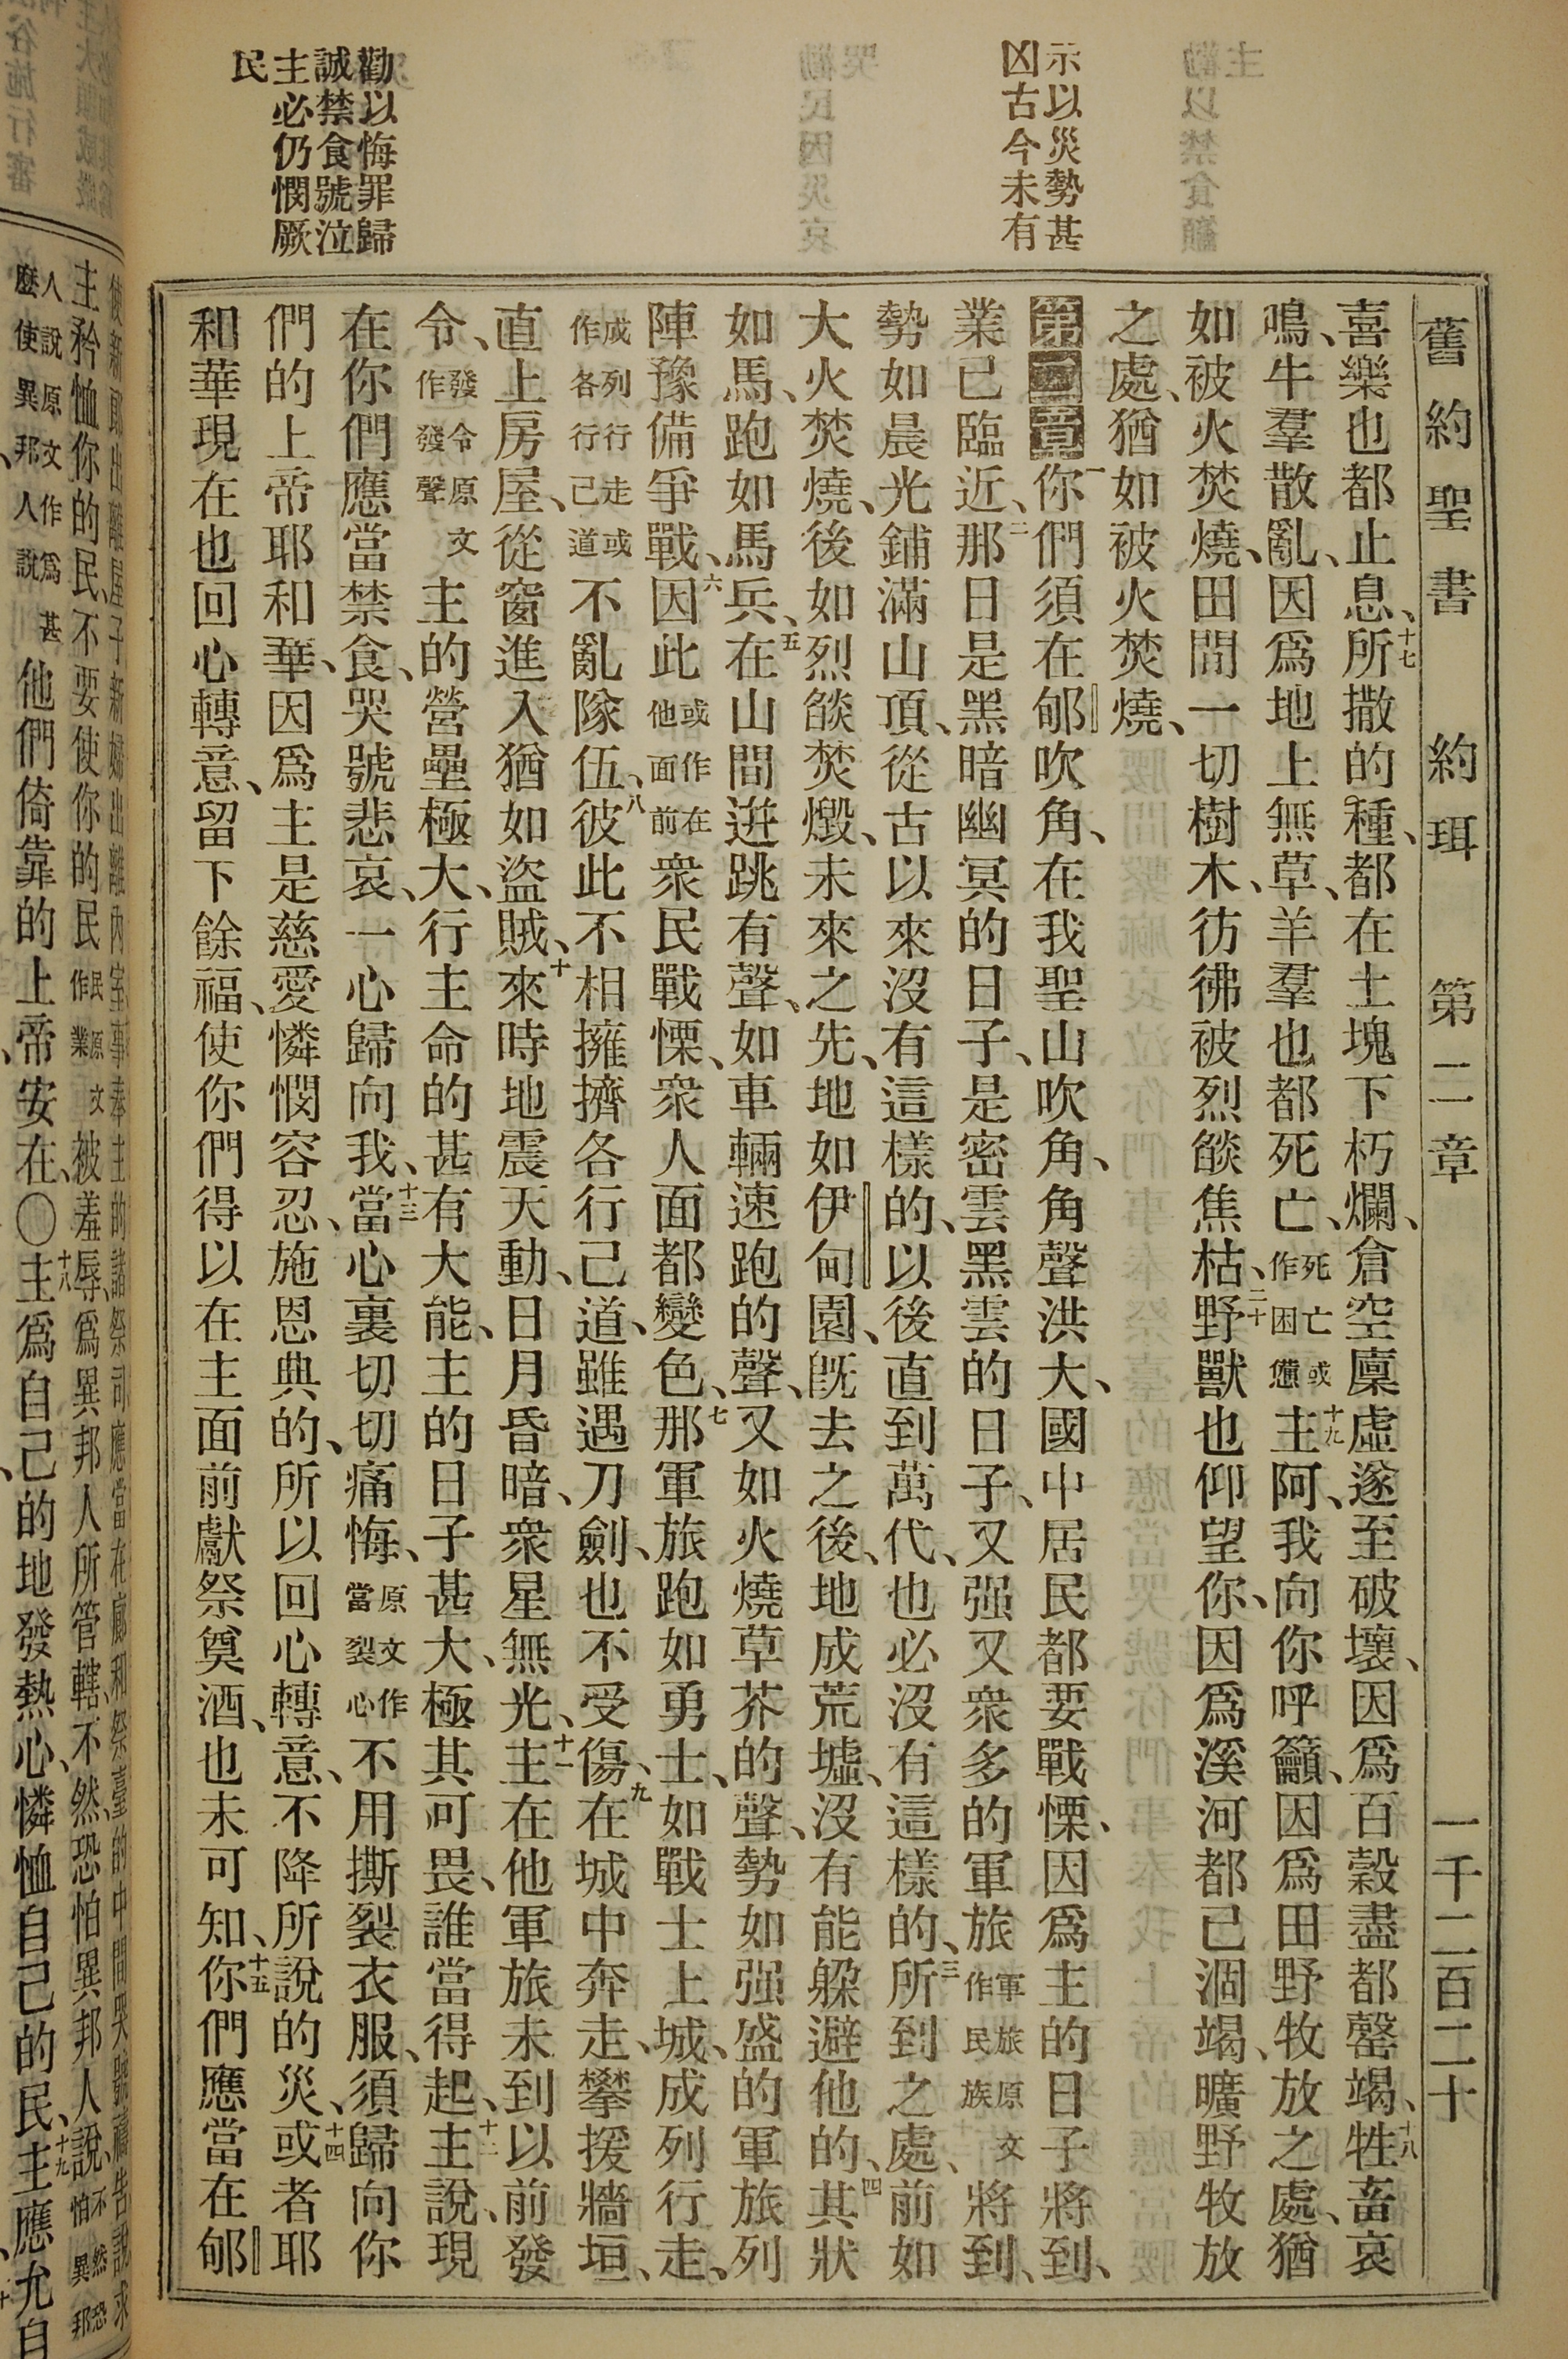 舊約聖書　約珥　第二章　一千二百二十
示以災勢甚
凶古今未有
勸以悔罪歸
誠禁食號泣
主必仍憫厥
民
喜樂也都止息、十七所撒的種、都在土塊下朽爛、倉空廩虛遂至破壞、因爲百穀盡都罄竭、十八牲畜哀
鳴、牛羣散亂、因爲地上無草、羊羣也都死亡、死亡或作困憊十九主阿、我向你呼籲、因爲田野牧放之處、猶
如被火焚燒、田間一切樹木、彷彿被烈燄焦枯、二十野獸也仰望你、因爲溪河都已涸竭、曠野牧放
之處、猶如被火焚燒、
第二章一你們須在郇吹角、在我聖山吹角、角聲洪大、國中居民都要戰慄、因爲主的日子將到、
業已臨近、二那日是黑暗幽冥的日子、是密雲黑雲的日子、又强又衆多的軍旅軍旅原文作民族將到、
勢如晨光鋪滿山頂、從古以來沒有這樣的、以後直到萬代、也必沒有這樣的、三所到之處、前如
大火焚燒、後如烈燄焚燬、未來之先、地如伊甸園、旣去之後、地成荒墟、沒有能躲避他的、四其狀
如馬、跑如馬兵、五在山間逬跳有聲、如車輛速跑的聲、又如火燒草芥的聲、勢如强盛的軍旅列
陣豫備爭戰、六因此或作在他面前衆民戰慄、衆人面都變色、七那軍旅跑如勇士、如戰士上城、成列行走、
成列行走或作各行己道不亂隊伍、八彼此不相擁擠各行己道、雖遇刀劍、也不受傷、九在城中奔走、攀援牆垣、
直上房屋、從窗進入猶如盜賊、十來時地震天動、日月昏暗、衆星無光、十一主在他軍旅未到以前發
令、發令原文作發聲主的營壘極大、行主命的甚有大能、主的日子甚大、極其可畏、誰當得起、十二主說、現
在你們應當禁食、哭號悲哀、一心歸向我、十三當心裏切切痛悔、原文作當裂心不用撕裂衣服、須歸向你
們的上帝耶和華、因爲主是慈愛憐憫容忍、施恩典的、所以回心轉意、不降所說的災、十四或者耶
和華現在也回心轉意、留下餘福、使你們得以在主面前獻祭奠酒、也未可知、十五你們應當在郇
主矜恤你的民、不要使你的民民原文作業被羞辱、爲異邦人所管轄、不然、恐怕異邦人說、
他們倚靠的上帝安在、〇十八主爲自己的地發熱心、憐恤自己的民、十九主應允自